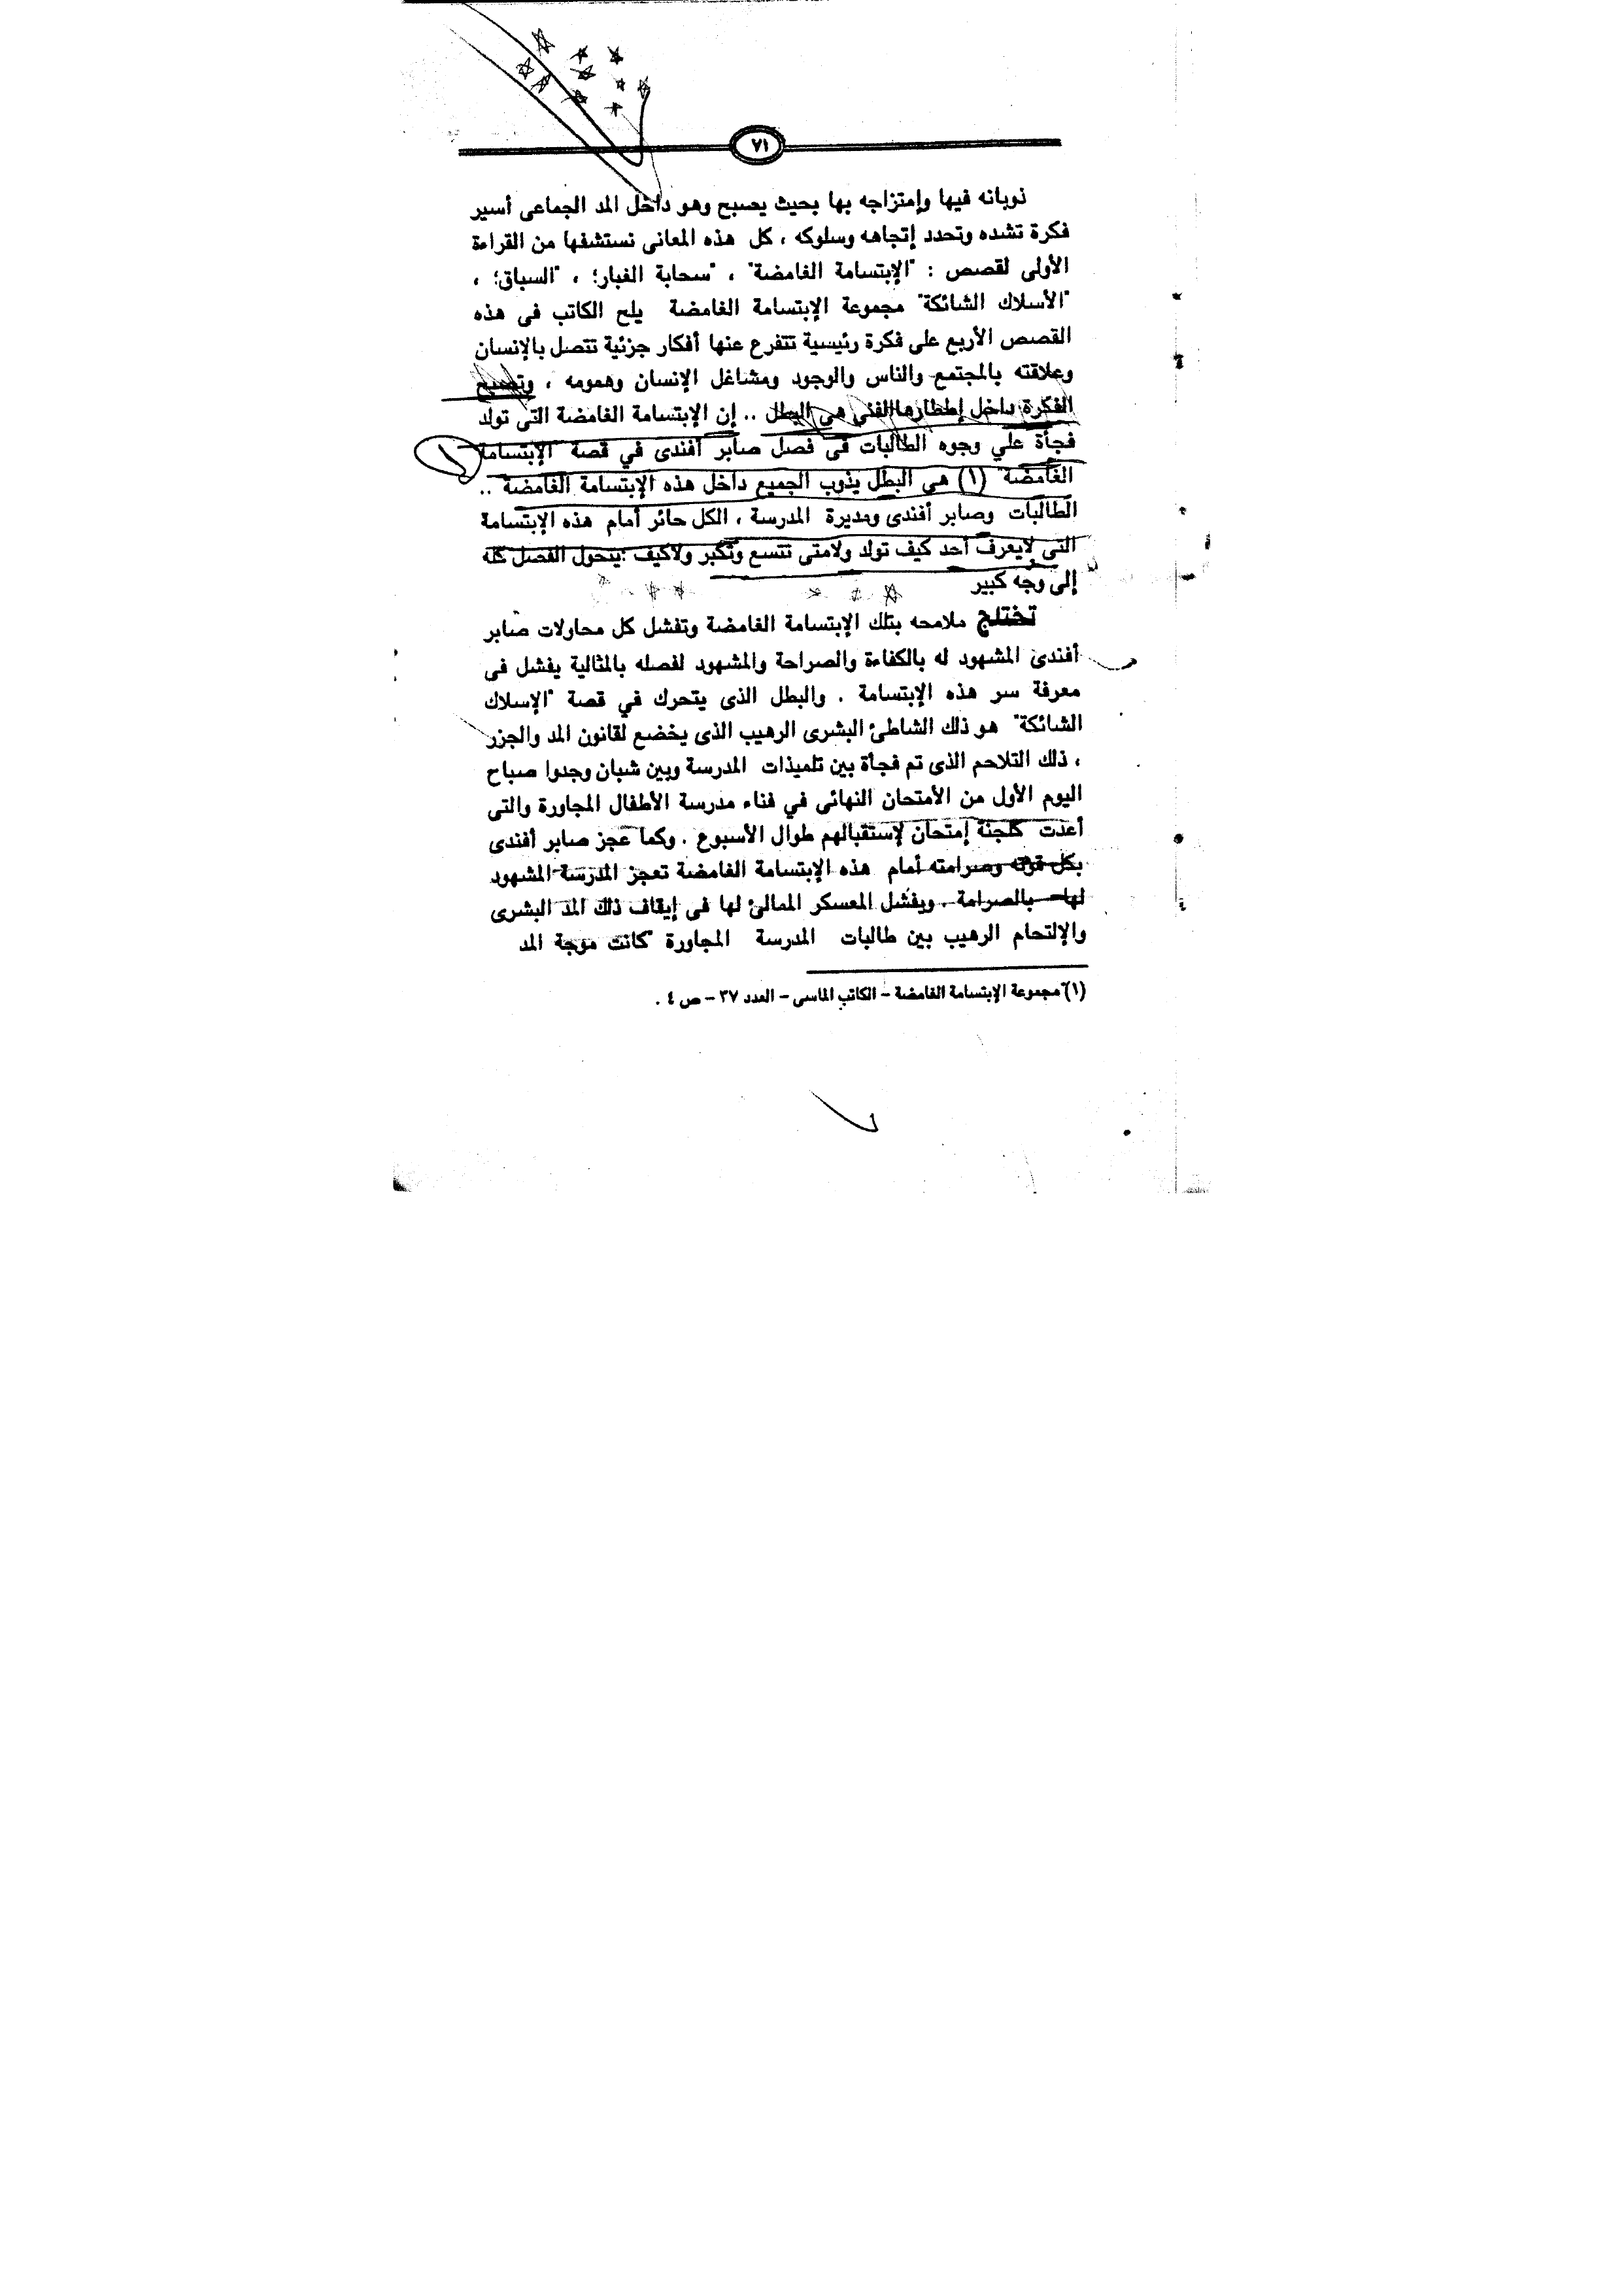 ٧١
ذوبانه فيها وإمتزاجه بها بحيث يصبح وهو داخل المد الجماعى أسير
فكرة تشده وتحدد إتجاهه وسلوكه ، كل هذه المعانى نستشفها من القراءة
الأولى لقصص : "الإبتسامة الغامضة" ، "سحابة الغبار؛ ، "السباق؛ ،
"الأسلاك الشائكة" مجموعة الإبتسامة الغامضة يلح الكاتب فى هذه
القصص الأربع على فكرة رئيسية تتفرع عنها أفكار جزئية تتصل بالإنسان
وعلاقته بالمجتمع والناس والوجود ومشاغل الإنسان وهمومه ، وتصبح
الفكرة داخل إطارها الفنى هى البطل .. إن الإبتسامة الغامضة التى تولد
فجأة علي وجوه الطالبات فى فصل صابر أفندى في قصة "الإبتسامة
الغامضة" (١) هى البطل يذوب الجميع داخل هذه الإبتسامة الغامضة ..
الطالبات وصابر أفندى ومديرة المدرسة ، الكل حائر أمام هذه الإبتسامة
التى لايعرف أحد كيف تولد ولامتى تتسع وتكبر ولاكيف :يتحول الفصل كله
إلى وجه كبير
تختلج ملامحه بتلك الإبتسامة الغامضة وتفشل كل محاولات صابر
أفندى المشهود له بالكفاءة والصراحة والمشهود لفصله بالمثالية يفشل فى
معرفة سر هذه الإبتسامة . والبطل الذى يتحرك في قصة "الإسلاك
الشائكة" هو ذلك الشاطئ البشرى الرهيب الذى يخضع لقانون المد والجزر
، ذلك التلاحم الذى تم فجأة بين تلميذات المدرسة وبين شبان وجدوا صباح
اليوم الأول من الأمتحان النهائى في فناء مدرسة الأطفال المجاورة والتى
أعدت كلجنة إمتحان لإستقبالهم طوال الأسبوع . وكما عجز صابر أفندى
بكل قوته وصرامته أمام هذه الإبتسامة الغامضة تعجز المدرسة المشهود
لها بالصرامة . ويفشل المعسكر الممالئ لها فى إيقاف ذلك المد البشرى
والإلتحام الرهيب بين طالبات المدرسة المجاورة "كانت موجة المد
(١) مجموعة الإبتسامة الغامضة – الكاتب الماسى – العدد ٣٧ – ص ٤ .